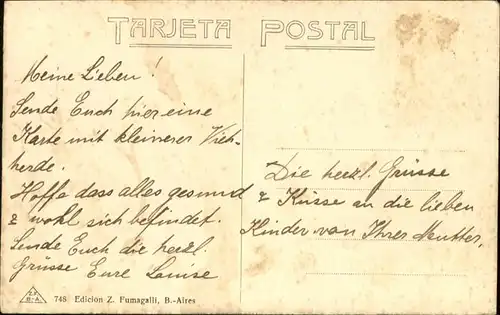 TARJETA POSTAL
Meine Lieben!
Sende Euch hier eine
Karte mit kleinerer Vieh-
herde.
Hoffe dass alles gesund
& wohl sich befindet.
Sende Euch die herzl.
Grüsse Eure Louise
Die herzl. Grüsse
& Küsse an die lieben
Kinder von Ihrer Mutter.
Z.F.
B.A.
748 Edicion Z. Fumagalli, B.-Aires